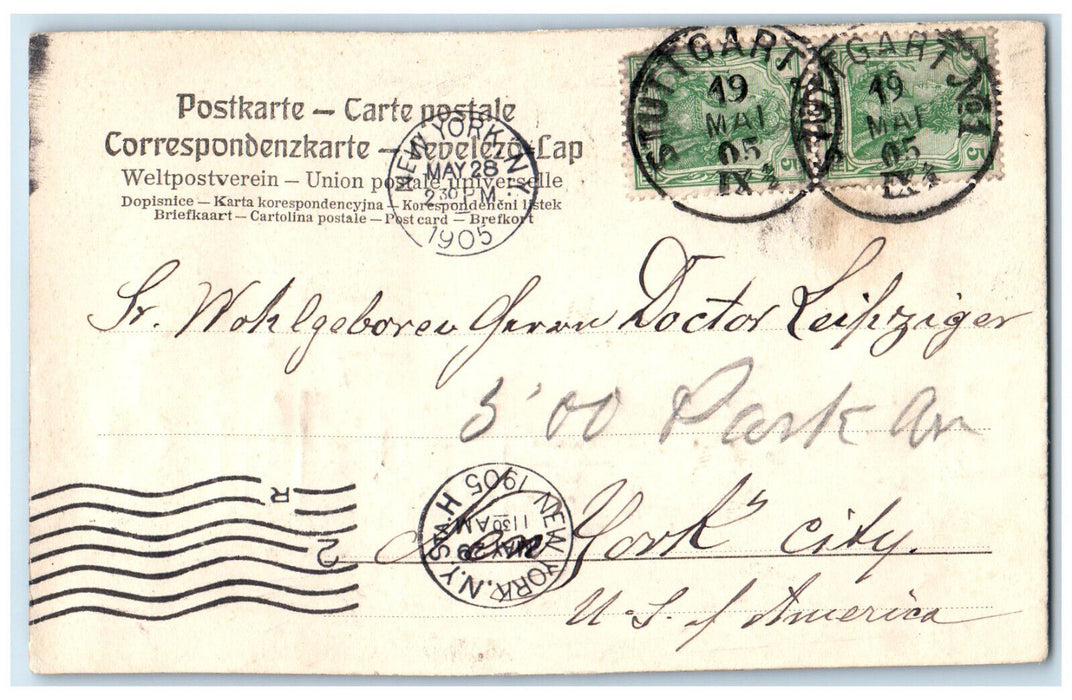 Postkarte – Carte postale
Correspondenzkarte – Levelező-Lap
Weltpostverein – Union postale universelle
Dopisnice – Karta korespondencyjna – Korespondenční lístek
Briefkaart – Cartolina postale – Post card – Brefkort
STUTTGART
19
MAI
05
IX ½
5
STUTTGART No. 1
19
MAI
05
IX ½
5
NEW YORK, N.Y.
MAY 28
2 30 P M
1905
Sr. Wohlgeboren Herrn Doctor Leipziger
500 Park Av
New York city.
U. S. of America
NEW YORK, N.Y. STA. H
MAY 29
11 30 AM
1905
R
2